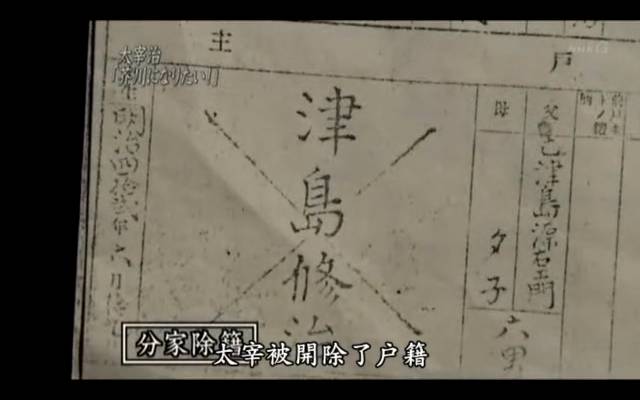 太宰治
「芥川になりたい!」
戸主
父
亡津島源右エ門
母
夕子
六男
津島修治
明治四拾弐年六月
分家除籍
太宰被開除了户籍